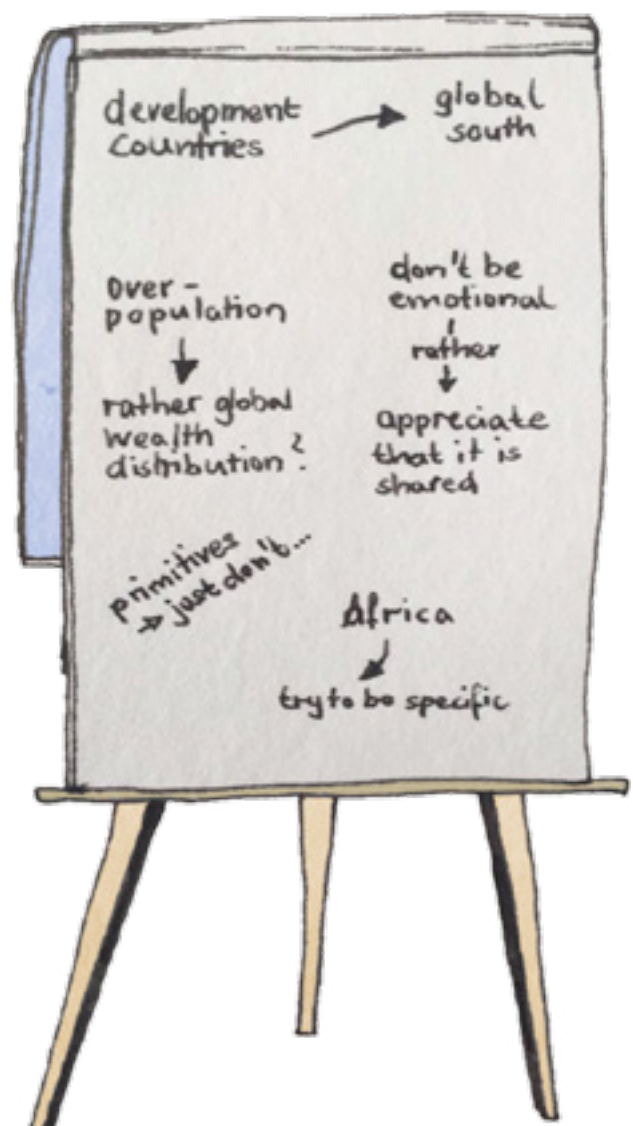 development
countries
global
south
over-
population
rather global
wealth
distribution?
don't be
emotional
rather
appreciate
that it is
shared
primitives
→ just don't...
Africa
try to be specific